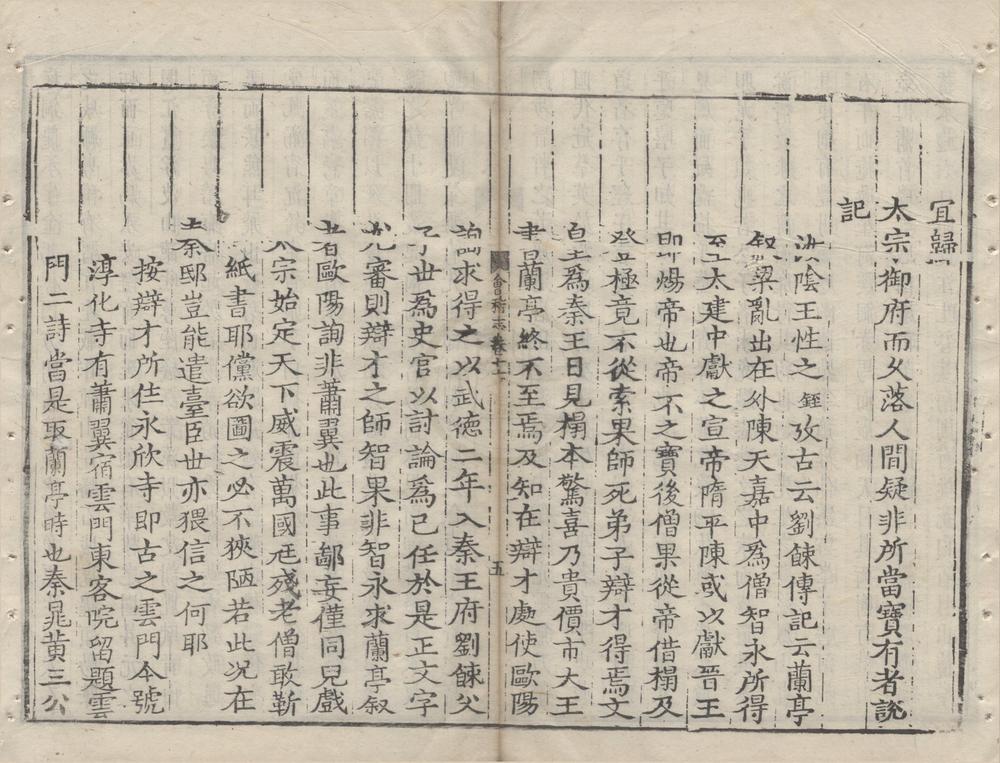 宜歸
太宗御府而乆落人間疑非所當寳有者説
記
汝陰王性之銍攷古云劉餗傳記云蘭亭
叙梁亂出在外陳天嘉中爲僧智永所得
至太建中獻之宣帝隋平陳或以獻晋王
即煬帝也帝不之寳後僧果從帝借榻及
登極竟不從索果師死弟子辯才得焉文
皇爲秦王日見榻本驚喜乃貴價市大王
書蘭亭終不至焉及知在辯才處使歐陽
詢求得之以武徳二年入秦王府劉餗父
子世爲史官以討論爲己任於是正文字
尤審則辯才之師智果非智永求蘭亭叙
者歐陽詢非蕭翼也此事鄙妄僅同兒戲
太宗始定天下威震萬國尫殘老僧敢靳
一紙書耶儻欲圖之必不狹陋若此况在
秦邸豈能遣臺臣世亦猥信之何耶
按辯才所住永欣寺即古之雲門今號
淳化寺有蕭翼宿雲門東客院留題雲
門二詩當是取蘭亭時也秦晁黄三公
會稽志卷十
五